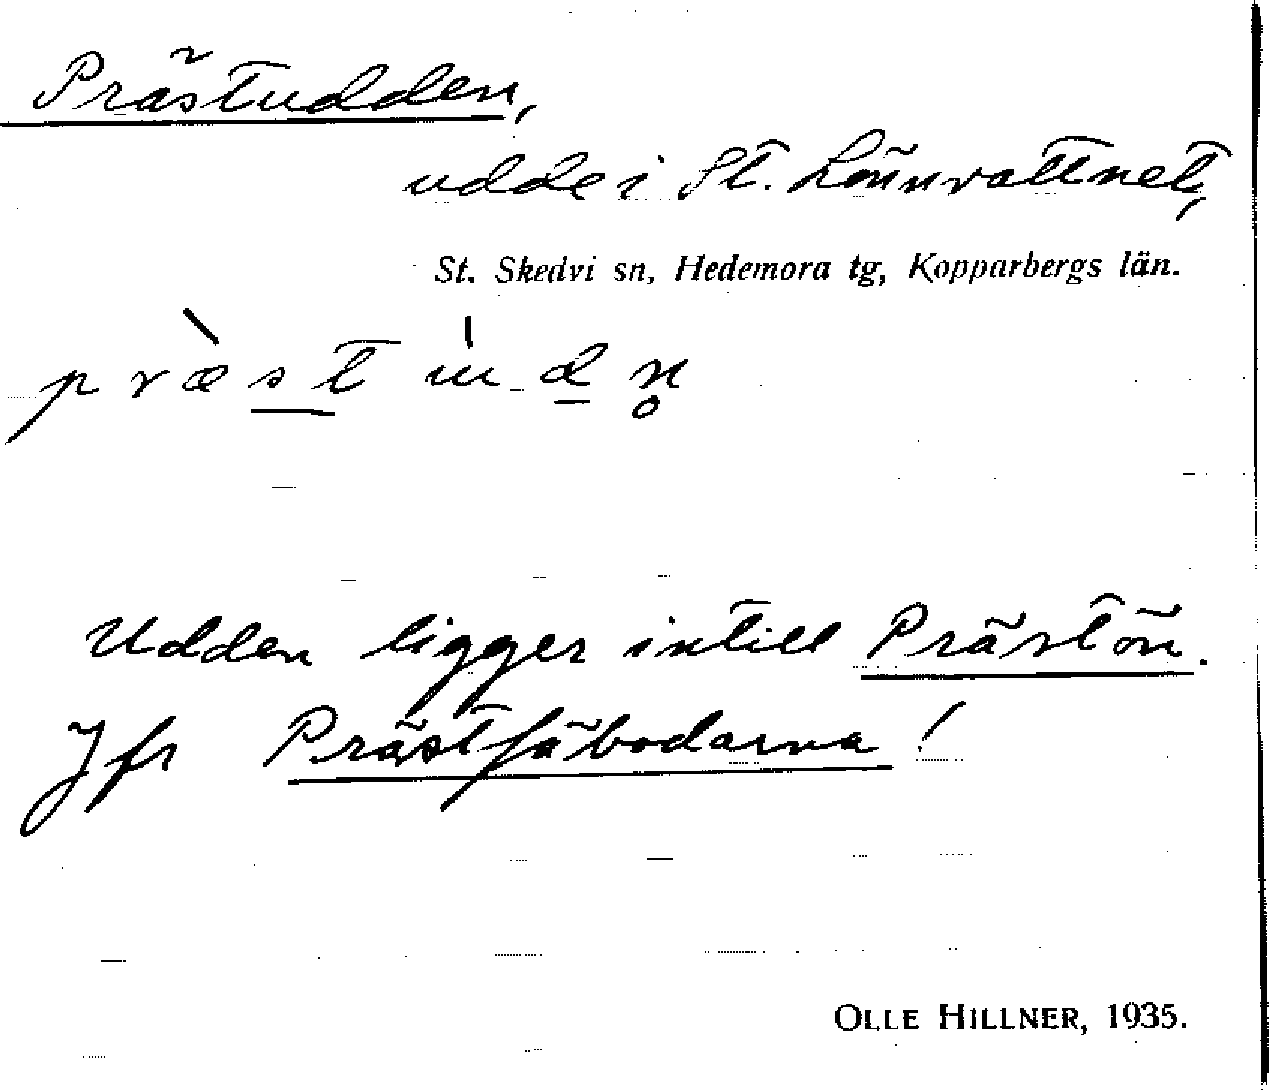 Prästudden,
udde i St. Lönnvattnet,
St. Skedvi sn, Hedemora tg, Kopparbergs län.
præst ud n̥
Udden ligger intill Prästön.
Jfr Prästfäbodarna!
OLLE HILLNER, 1935.